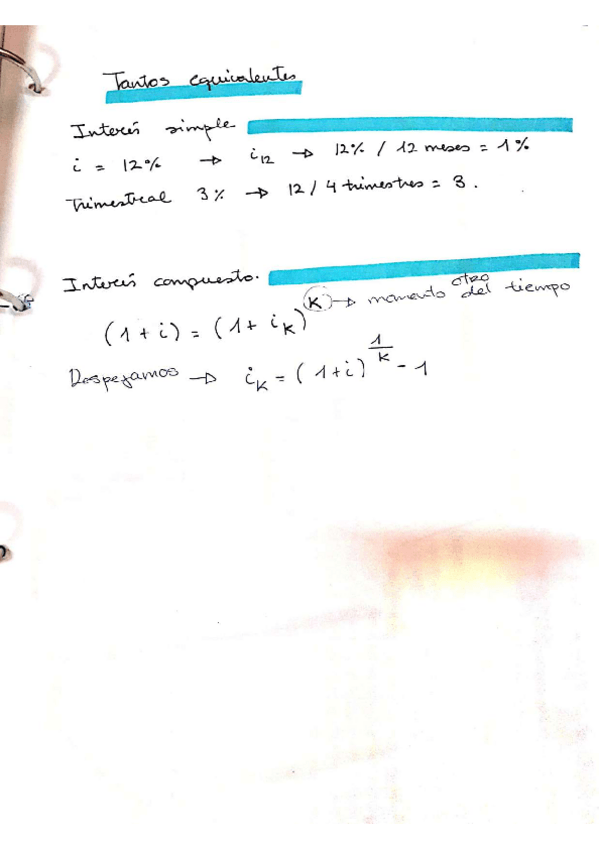 Tantos equivalentes
Interés simple
i = 12% → i12 → 12% / 12 meses = 1%
Trimestreal 3% → 12 / 4 trimestres = 3.
Interés compuesto.
(1 + i) = (1 + iK)^K → momento otro del tiempo
Despejamos → iK = (1+i)^1/K - 1